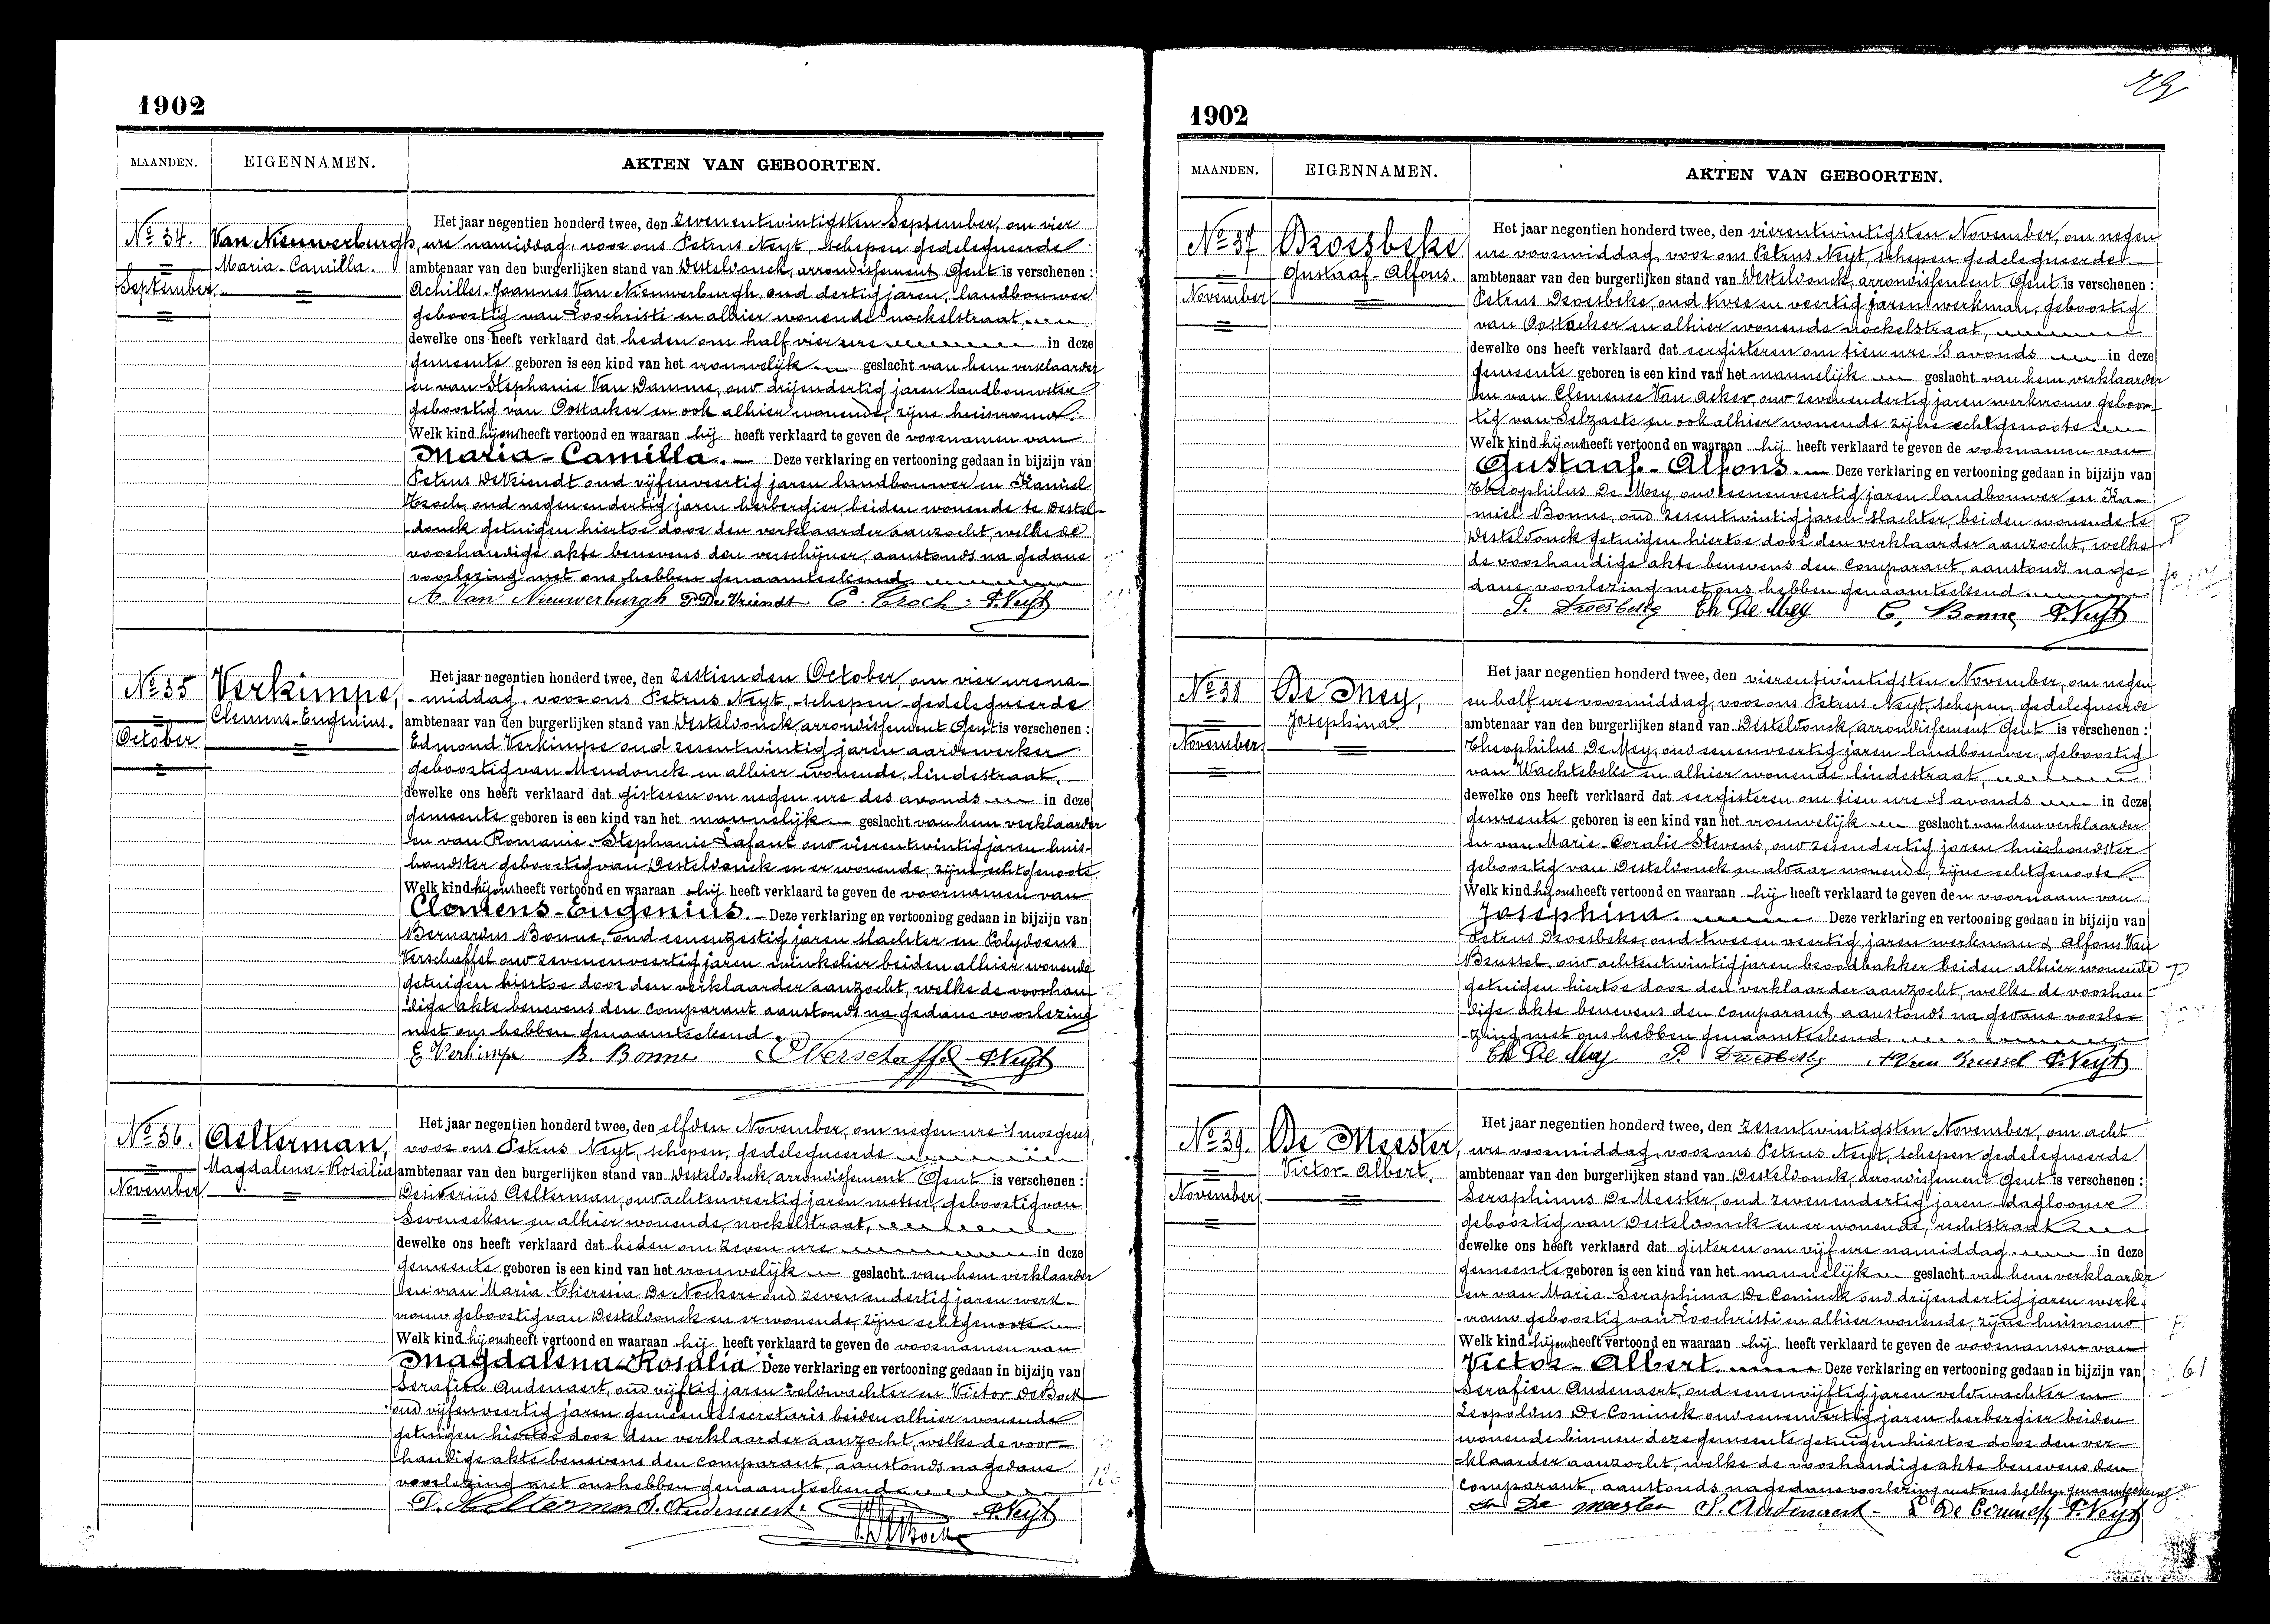 1902
MAANDEN. EIGENNAMEN. AKTEN VAN GEBOORTEN.
No 34.
September
Van Nieuwerburgh,
Maria-Camilla.
Het jaar negentien honderd twee, den zevenentwintigsten September, om vier
ure namiddag, voor ons Petrus Neyt, schepen gedelegueerde
ambtenaar van den burgerlijken stand van Desteldonck, arrondissement Gent is verschenen:
Achilles-Joannes Van Nieuwerburgh, oud dertig jaren, landbouwer
geboortig van Loochristi en alhier wonende nockelstraat,
dewelke ons heeft verklaard dat heden om half vier ure in deze
gemeente geboren is een kind van het vrouwelijk geslacht van hem verklaarder
en van Stephanie Van Damme, oud drijendertig jaren landbouwster
geboortig van Oostacker en ook alhier wonende, zijne huisvrouw.
Welk kind hij ons heeft vertoond en waaraan hij heeft verklaard te geven de voornamen van
Maria-Camilla. Deze verklaring en vertooning gedaan in bijzijn van
Petrus De Vriendt oud vijfenveertig jaren landbouwer en Kamiel
Troch, oud negenendertig jaren herbergier, beiden wonende te Destel-
donck getuigen hiertoe door den verklaarder aanzocht, welke de
voorhandige akte benevens den verschijner, aanstonds na gedane
voorlezing met ons hebben genaamteekend.
A. Van Nieuwerburgh P. De Vriendt C. Troch P. Neyt
No 35
October
Verkimpe,
Clemens-Eugenius.
Het jaar negentien honderd twee, den zestienden October, om vier ure na-
middag, voor ons Petrus Neyt, schepen gedelegueerde
ambtenaar van den burgerlijken stand van Desteldonck, arrondissement Gent is verschenen:
Edmond Verkimpe oud zesentwintig jaren aardewerker
geboortig van Mendonck en alhier wonende, lindestraat,
dewelke ons heeft verklaard dat gisteren om negen ure des avonds in deze
gemeente geboren is een kind van het mannelijk geslacht van hem verklaarder
en van Romanie-Stephanie Lafaut oud vierentwintig jaren huis-
houdster geboortig van Desteldonck en er wonende, zijne echtgenoote.
Welk kind hij ons heeft vertoond en waaraan hij heeft verklaard te geven de voornamen van
Clemens-Eugenius. Deze verklaring en vertooning gedaan in bijzijn van
Bernardus Bonne, oud eenenzestig jaren slachter en Polydorus
Verschaffel oud zevenenveertig jaren winkelier beiden alhier wonende
getuigen hiertoe door den verklaarder aanzocht, welke de voorhan-
dige akte benevens den comparant aanstonds na gedane voorlezing
met ons hebben genaamteekend.
E Verkimpe B. Bonne P Verschaffel P. Neyt
No 36.
November
Aelterman,
Magdalena-Rosalia
Het jaar negentien honderd twee, den elfden November, om negen ure 's morgens,
voor ons Petrus Neyt, schepen, gedelegueerde
ambtenaar van den burgerlijken stand van Desteldonck, arrondissement Gent is verschenen:
Desiderius Aelterman, oud achtenveertig jaren metser, geboortig van
Seveneeken en alhier wonende, nockelstraat,
dewelke ons heeft verklaard dat heden om zeven ure in deze
gemeente geboren is een kind van het vrouwelijk geslacht van hem verklaarder
en van Maria-Theresia De Nockere oud zeven en dertig jaren werk-
vrouw geboortig van Desteldonck en er wonende, zijne echtgenoote
Welk kind hij ons heeft vertoond en waaraan hij heeft verklaard te geven de voornamen van
Magdalena-Rosalia Deze verklaring en vertooning gedaan in bijzijn van
Serafien Audenaert, oud vijftig jaren veldwachter en Victor De Bock
oud vijfenveertig jaren gemeentesecretaris beiden alhier wonende
getuigen hiertoe door den verklaarder aanzocht, welke de voor-
handige akte benevens den comparant, aanstonds na gedane
voorlezing met ons hebben genaamteekend
D. Aelterman S. Audenaert. P. Neyt
V. De Bock
1902
MAANDEN. EIGENNAMEN. AKTEN VAN GEBOORTEN.
No 37
November
Droesbeke
Gustaaf-Alfons.
Het jaar negentien honderd twee, den vierentwintigsten November, om negen
ure voormiddag, voor ons Petrus Neyt, schepen gedelegueerde
ambtenaar van den burgerlijken stand van Desteldonck, arrondissement Gent is verschenen:
Petrus Droesbeke, oud twee en veertig jaren werkman, geboortig
van Oostacker en alhier wonende nockelstraat,
dewelke ons heeft verklaard dat eergisteren om tien ure 's avonds in deze
gemeente geboren is een kind van het mannelijk geslacht van hem verklaarder
en van Clemence Van Acker, oud zevenendertig jaren werkvrouw geboor-
tig van Selzaete en ook alhier wonende zijne echtgenoote
Welk kind hij ons heeft vertoond en waaraan hij heeft verklaard te geven de voornamen van
Gustaaf-Alfons. Deze verklaring en vertooning gedaan in bijzijn van
Theophilus De Mey, oud eenenveertig jaren landbouwer en Ka-
miel Bonne, oud zesentwintig jaren slachter beiden wonende te
Desteldonck getuigen hiertoe door den verklaarder aanzocht, welke
de voorhandige akte benevens den comparant, aanstonds na ge-
dane voorlezing met ons hebben genaamteekend
P. Droesbeke Th De Mey C. Bonne P. Neyt
No 38
November
De Mey,
Josephina.
Het jaar negentien honderd twee, den vierentwintigsten November, om negen
en half ure voormiddag, voor ons Petrus Neyt, schepen, gedelegueerde
ambtenaar van den burgerlijken stand van Desteldonck, arrondissement Gent is verschenen:
Theophilus De Mey, oud eenenveertig jaren landbouwer, geboortig
van Wachtebeke en alhier wonende lindestraat,
dewelke ons heeft verklaard dat eergisteren om tien ure 's avonds in deze
gemeente geboren is een kind van het vrouwelijk geslacht van hem verklaarder
en van Marie-Coralie Stevens, oud zesendertig jaren huishoudster
geboortig van Desteldonck en aldaar wonende, zijne echtgenoote.
Welk kind hij ons heeft vertoond en waaraan hij heeft verklaard te geven den voornaam van
Josephina. Deze verklaring en vertooning gedaan in bijzijn van
Petrus Droesbeke, oud twee en veertig jaren werkman & Alfons Van
Brussel, oud achtentwintig jaren broodbakker beiden alhier wonende
getuigen hiertoe door den verklaarder aanzocht, welke de voorhan-
dige akte benevens den comparant, aanstonds na gedane voorle-
zing met ons hebben genaamteekend.
Th De Mey P. Droesbeke A Van Brussel P. Neyt
No 39.
November
De Meester,
Victor-Albert.
Het jaar negentien honderd twee, den zesentwintigsten November, om acht
ure voormiddag, voor ons Petrus Neyt, schepen gedelegueerde
ambtenaar van den burgerlijken stand van Desteldonck, arrondissement Gent is verschenen:
Seraphinus De Meester, oud zevenendertig jaren daglooner
geboortig van Desteldonck en er wonende, rechtstraat
dewelke ons heeft verklaard dat gisteren om vijf ure namiddag in deze
gemeente geboren is een kind van het mannelijk geslacht van hem verklaarder
en van Maria-Seraphina De Coninck oud drijendertig jaren werk-
vrouw geboortig van Loochristi en alhier wonende, zijne huisvrouw
Welk kind hij ons heeft vertoond en waaraan hij heeft verklaard te geven de voornamen van
Victor-Albert. Deze verklaring en vertooning gedaan in bijzijn van
Serafien Audenaert, oud eenenvijftig jaren veldwachter en
Leopoldus De Coninck oud eenenveertig jaren herbergier beiden
wonende binnen deze gemeente getuigen hiertoe door den ver-
klaarder aanzocht, welke de voorhandige akte benevens den
comparant, aanstonds na gedane voorlezing met ons hebben genaamteekend.
De meester S. Audenaert L De Coninck P. Neyt
61